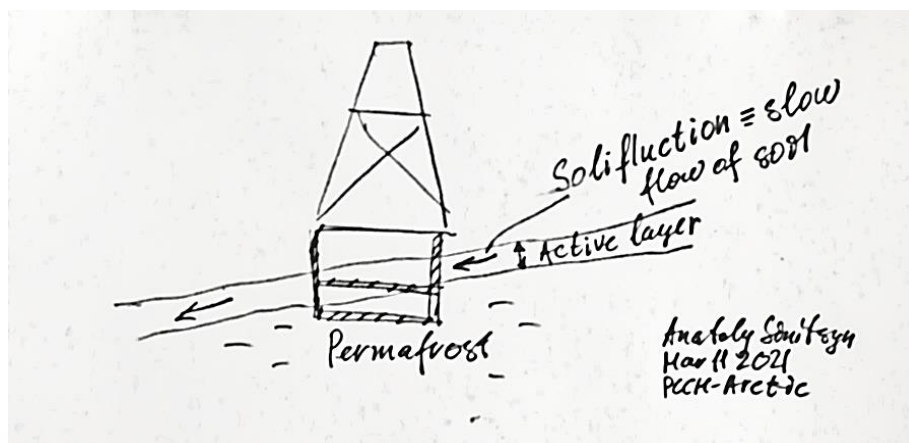 Solifluction ≡ slow
flow of soil
Active layer
Permafrost
Anatoly Sinitsyn
Mar 11 2021
PCCH-Arctic